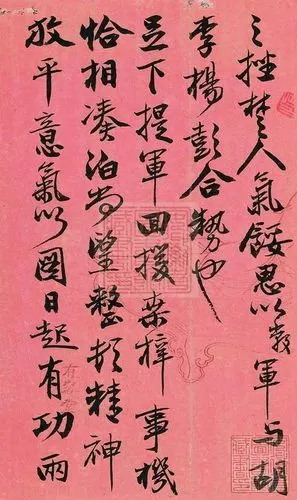 之挫楚人氣餒思以軍与胡
李楊彭合勢也
足下提軍回援桑梓事機
恰相湊泊尚望整頓精神
放平意氣以圖日起有功兩